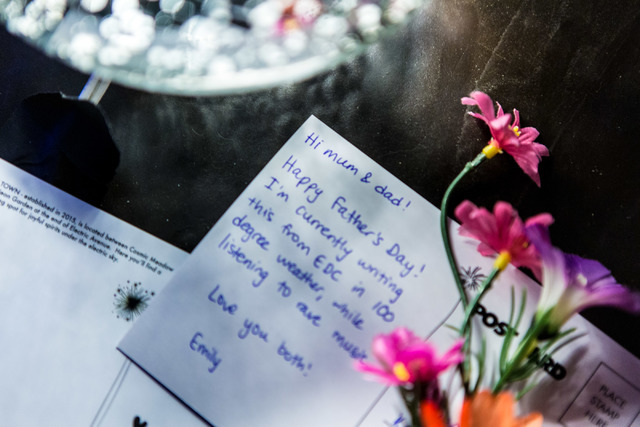 TOWN - established in 2015, is located between Cosmic Meadow
Garden at the end of Electric Avenue. Here you'll find a
spot for joyful spirits under the electric sky.
Hi mum & dad!
Happy Father's Day!
I'm currently writing
this from EDC in 100
degree weather, while
listening to rave music
Love you both!
Emily
POST
PLACE
STAMP
HERE